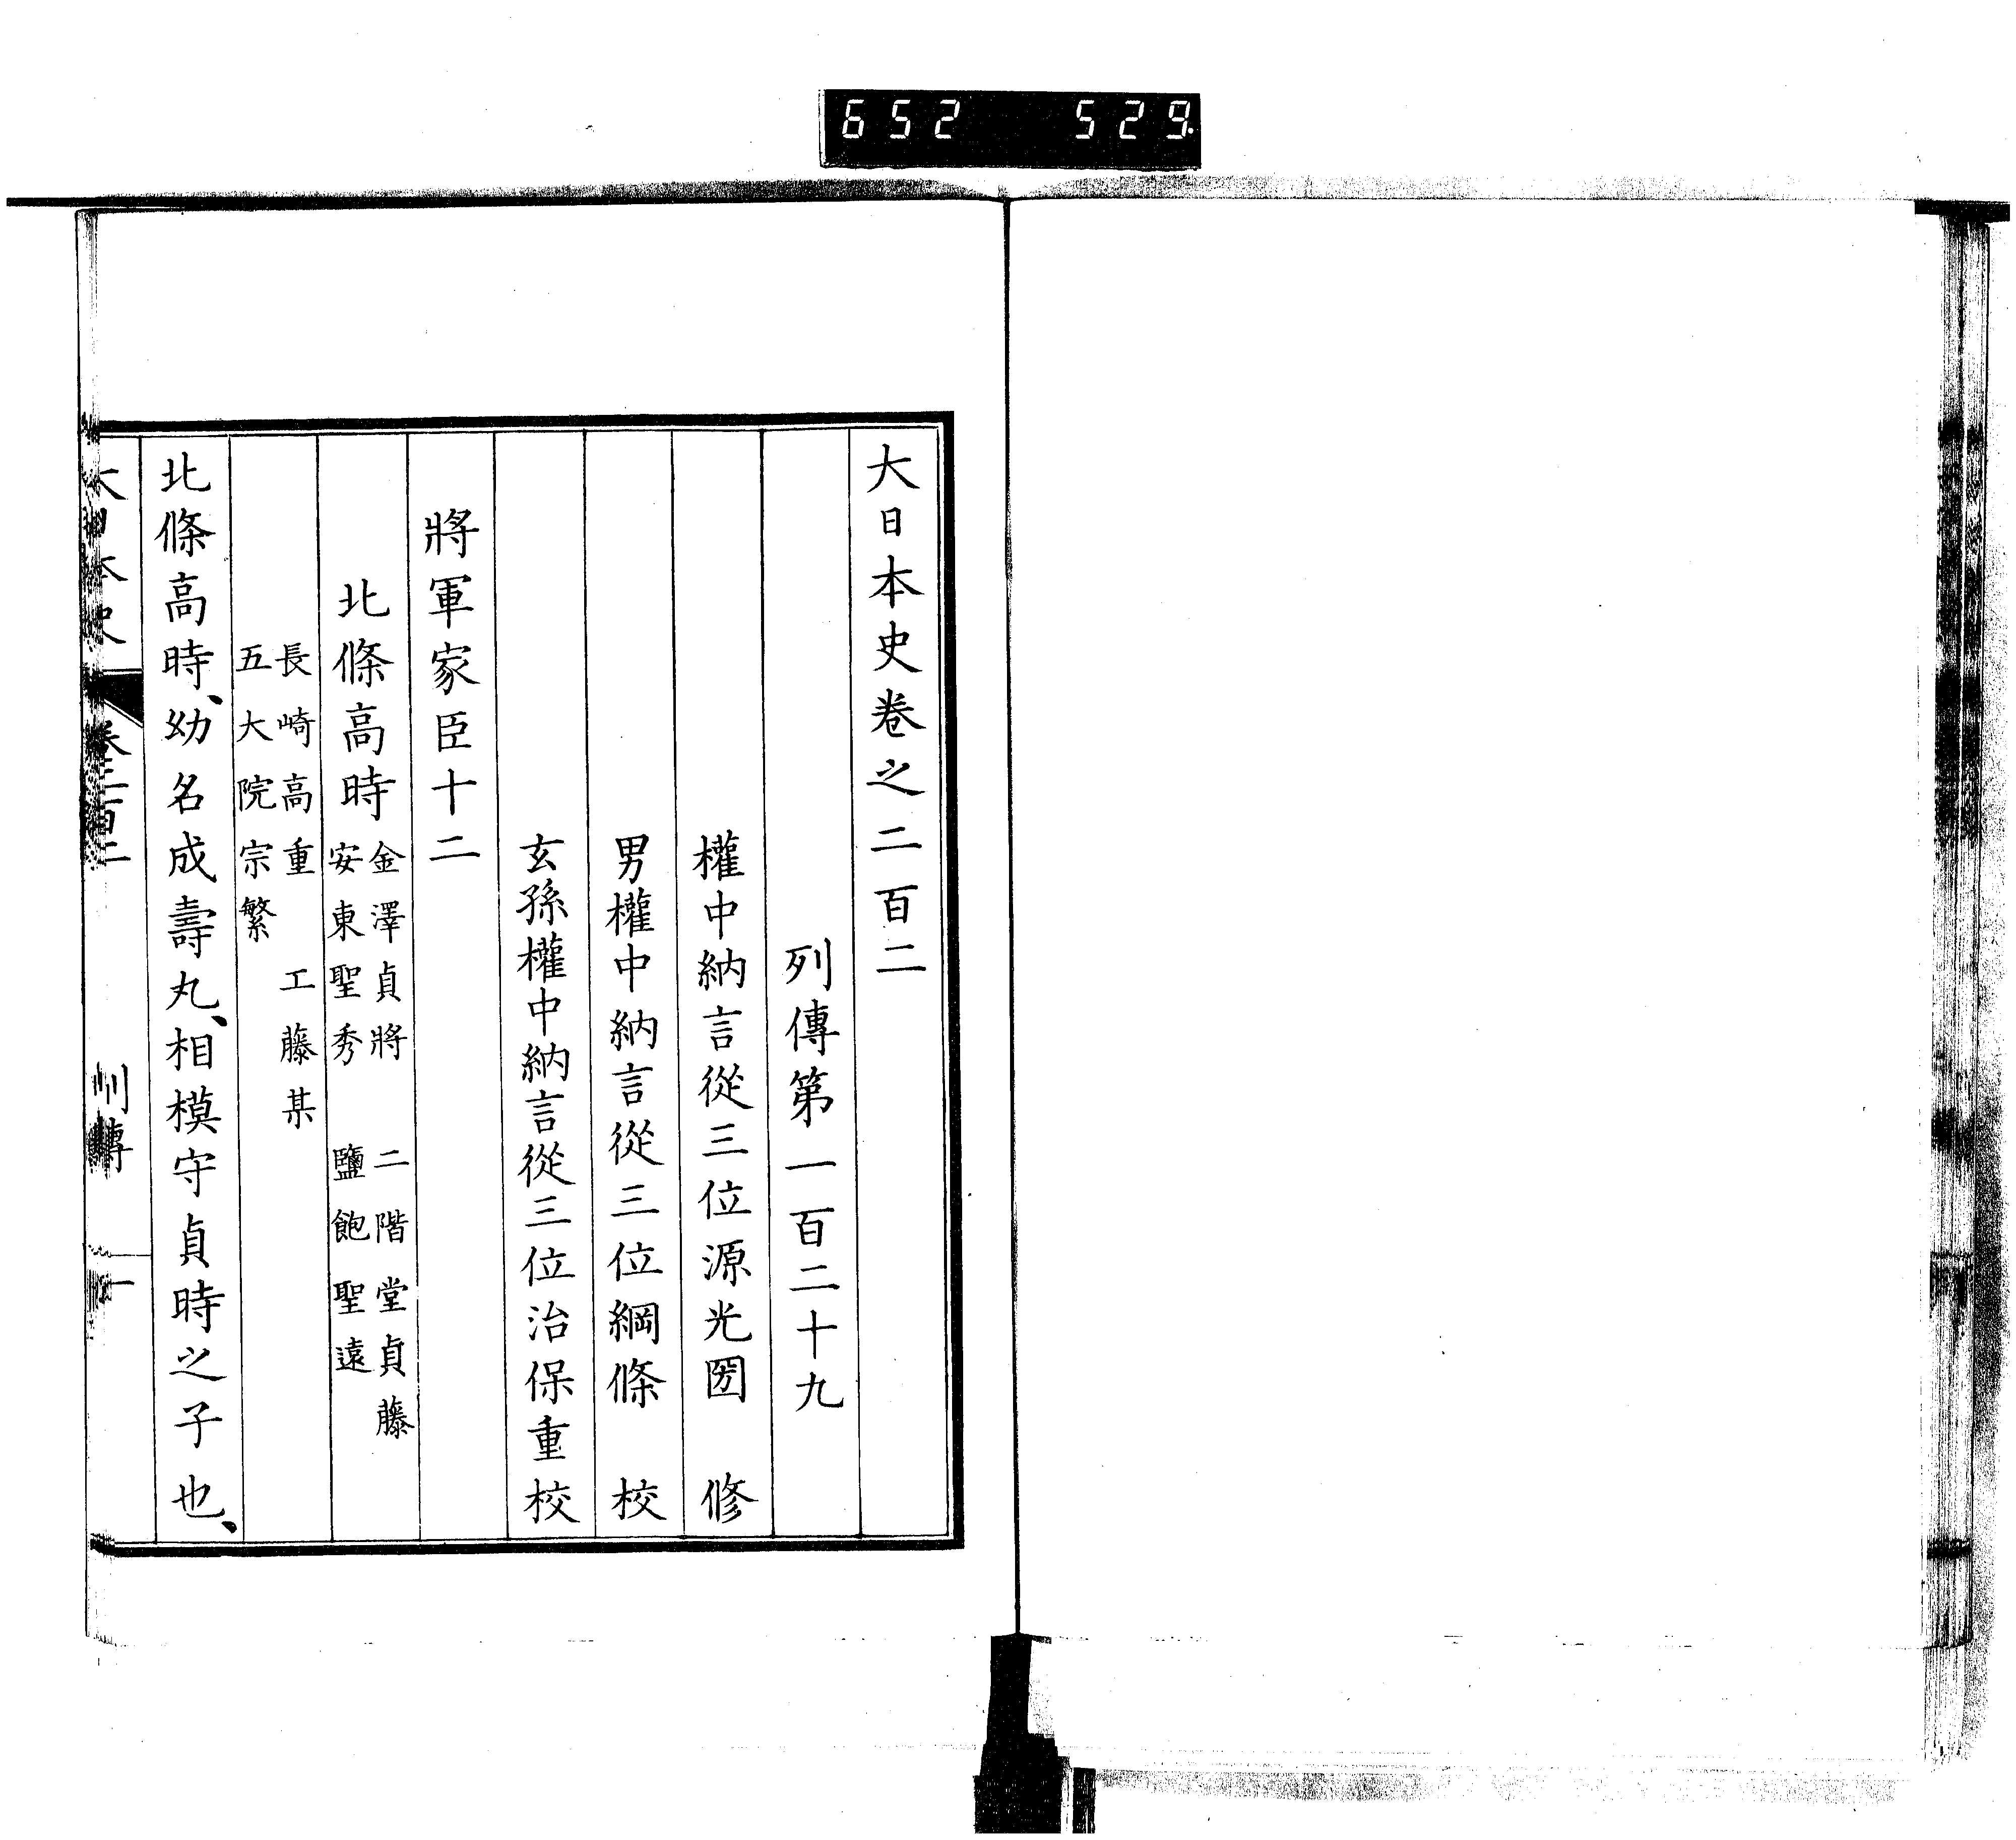 652 529
大日本史卷之二百二
列傳第一百二十九
權中納言從三位源光圀 修
男權中納言從三位綱條 校
玄孫權中納言從三位治保重校
將軍家臣十二
北條高時 金澤貞將 二階堂貞藤
安東聖秀 鹽飽聖遠
長崎高重 工藤某
五大院宗繁
北條高時、幼名成壽丸、相模守貞時之子也、
大日本史 卷二百二 列傳 一